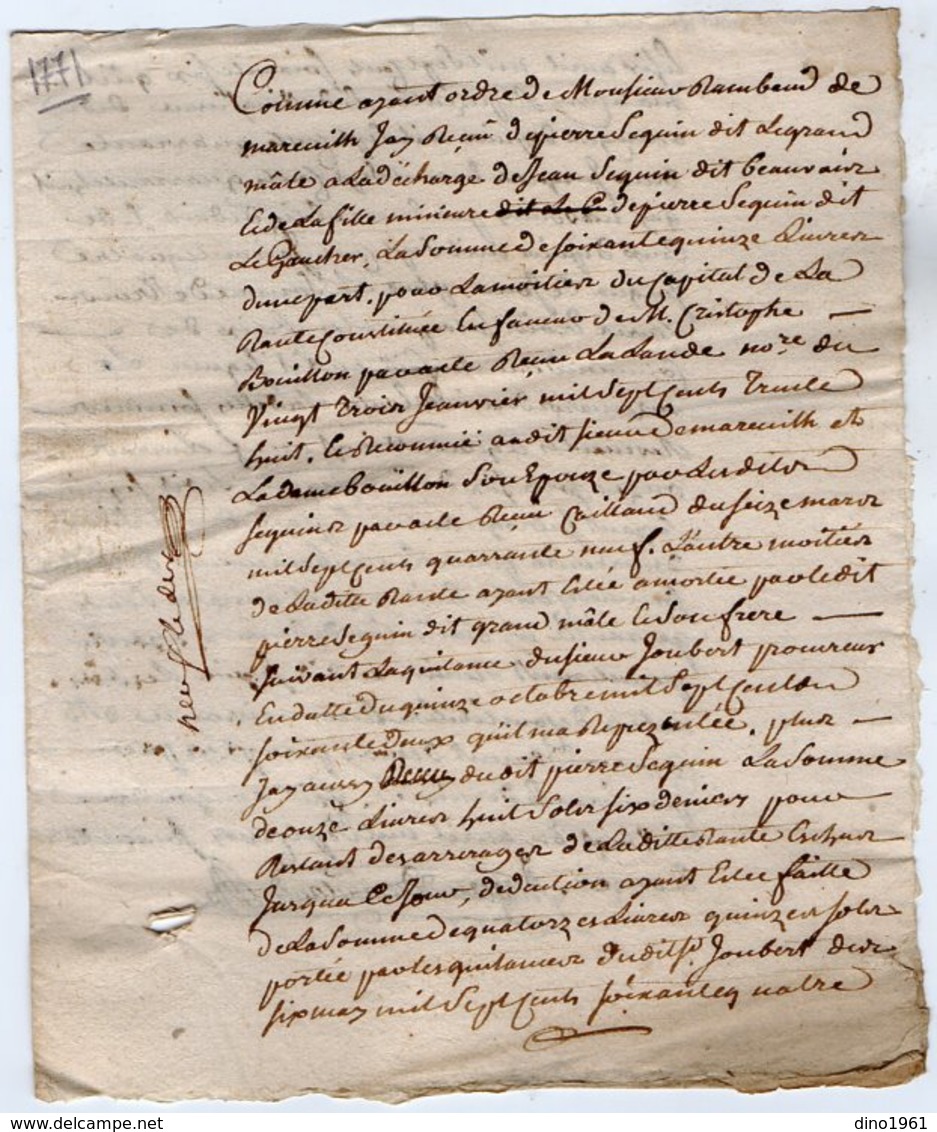 1771
Comme ayant ordre de Monsieur Rambaud de
mareuilh Jay Receu de pierre Seguin dit Legrand
mâle a La décharge de Jean Seguin dit beauvair
Et de La fille mineure dit Le G de pierre Seguin dit
Le Gaucher, La Somme de Soixante quinze Livres
d'une part, pour La moitier du Capital de La
Rante Constituée En faveur de M. Cristophe —
Bouillon par acte Receu La Lande no.re du
Vingt Trois Jeanvier mil Sept Cents Trente
huit, et Reconnuë audit sieur de mareuilh et
La dame bouillon Son Epouze par Lesdits
Seguins par acte Receu Caillaud du Seize mars
mil Sept Cents quarrante neuf, L'autre moitier
de La ditte Rante ayant Estée amortie par ledit
pierre Seguin dit grand mâle et Son frere —
Suivant La quitance du sieur Joubert procureur
En datte du quinze octobre mil Sept Cent
soixante deux qu'il ma Reprezentée, plus —
Jay aussy Receu dudit pierre Seguin La Somme
de onze Livres huit Sols Six deniers pour
Restant des arrerages de La ditte Rante Eschus
Jusqua Ce Jour, deduction ayant Estée faitte
de La Somme de quatorzes Livres quinzes Sols
portée par les quitances dudit S.r Joubert des
six may mil Sept Cents soixante quatre
dino1961